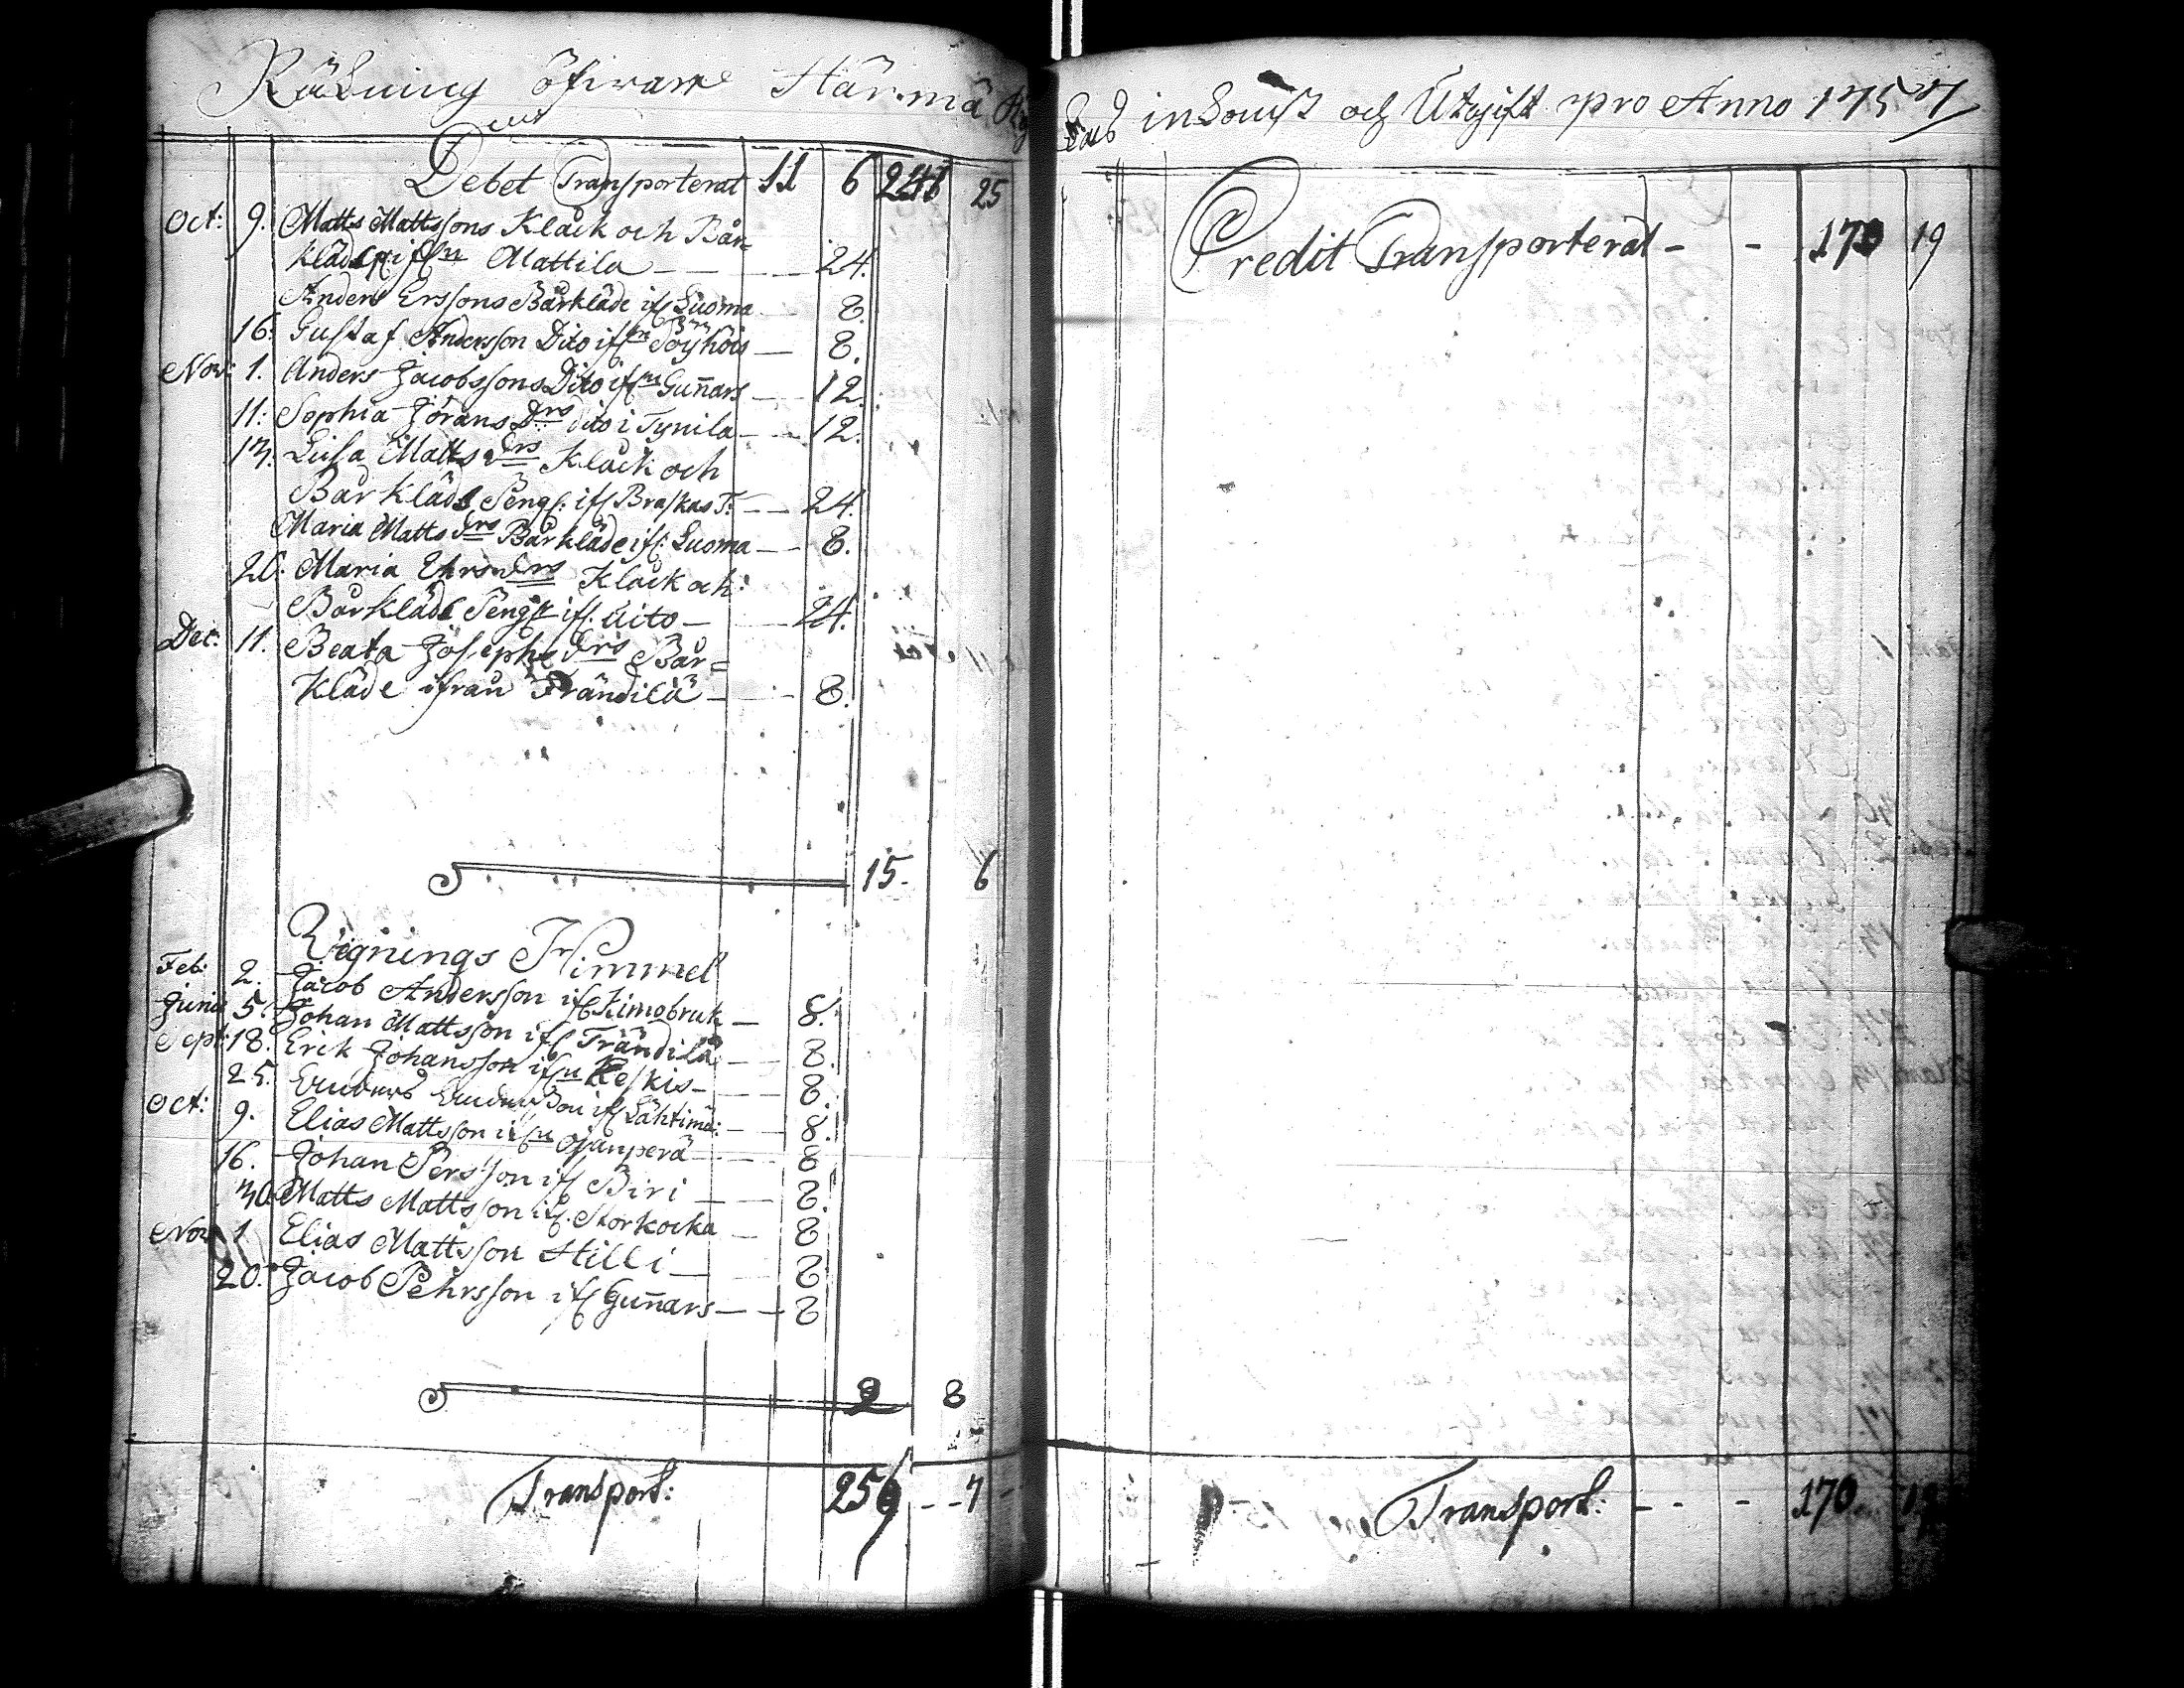 Räkning öfwer Härmä
Debet Transporterat 11 6 241 25
Oct: 9. Matts Mattssons Klåck och Bår-
kläds if:n Mattila — 24.
Anders Erssons Bårkläde if: Luoma 8.
16: Gustaf Andersson Dito if:n Pöyhöis — 8.
Nov: 1. Anders Jacobssons Dito if:n Guñars — 12.
11: Sophia Jörans Drs dito i Tynila — 12.
13. Lisa Matts Drs Klåck och
Bårkläds Peng: if: Braskas T: — 24.
Maria Matts Drs Bårkläde if: Luoma — 8.
20. Maria Ehrs Drs Klåck och:
Bårkläds Peng: if: dito — 24.
Dec: 11. Beata Josephs Drs Bår=
kläde ifrån Frändilä — 8.
15. 6
Vignings Himmel
Feb: 2. Jacob Andersson if: Kimobruk — 8.
Junii 5. Johan Mattsson if: Frändilä — 8.
Sept: 18. Erik Johansson if:n Keskis — 8.
25. Anders Andersson if: Lähtimä: — 8.
Oct: 9. Elias Mattsson if:n Ojanperä — 8
16. Johan Persson if: Biri — 8.
30. Matts Mattsson if: Storkocka 8
Nov 1 Elias Mattsson Hilli — 8
20. Jacob Pehrsson if: Guñars — 8
2 8
Transport: 256 - - 7
inkomst och Utgift pro Anno 1757
Credit Transporterat - - 170 19
Transport: - - - 170 19